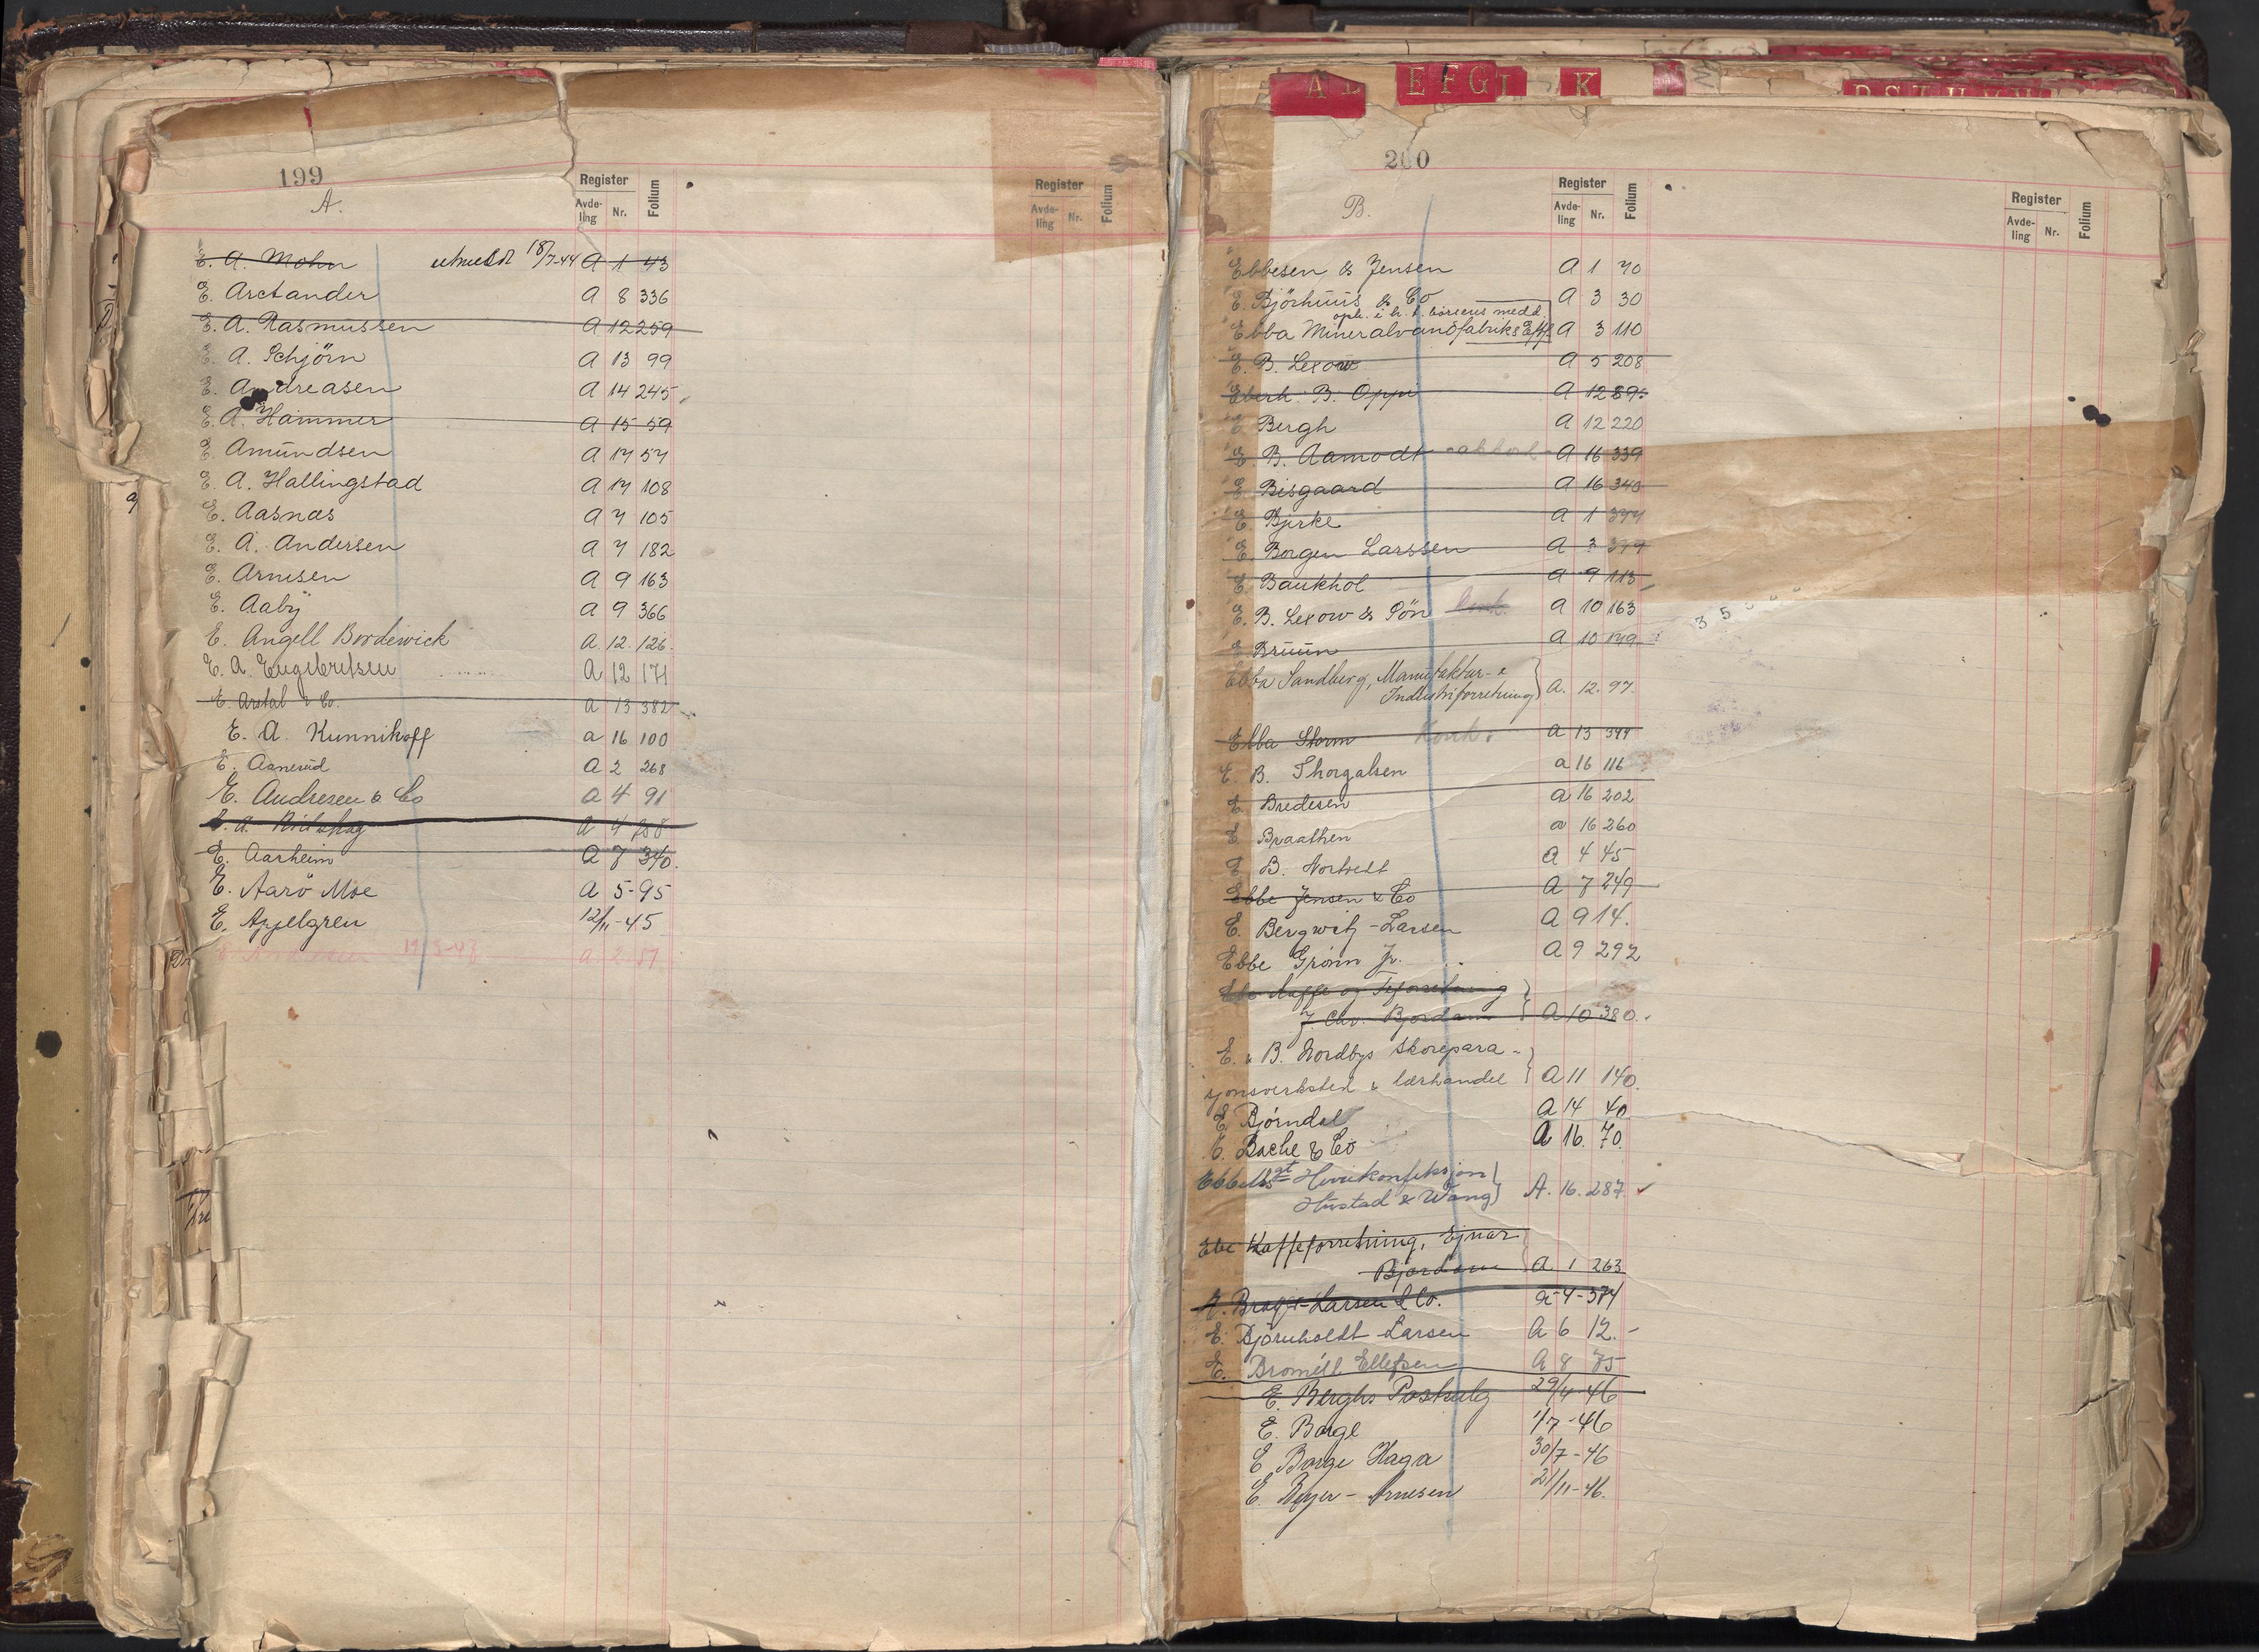 199
A.
Register
Avde-
ling
Nr.
Folium
Register
Avde-
ling
Nr.
Folium
E. A. Mohn utmeldt 18/7-44 A 1 43
E. Arctander A 8 336
E. A. Rasmussen A 12 259
E. A. Schjörn A 13 99
E. Andreasen A 14 245
E. A. Hammer A 15 59
E. Amundsen A 14 54
E. A. Hallingstad A 14 108
E. Aasnæs A 7 105
E. A. Andersen A 7 182
E. Arnesen A 9 163
E. Aaby A 9 366
E. Angell Bordewick A. 12. 126.
E. A. Engebretsen A 12 171
E. Arstal & Co. A 13 382
E. A. Kunnikoff A 16 100
E. Aanerud A 2 268
E. Andresen & Co A 4 91
E. A. A 4
E. Aarheim A 7 340.
E. Aarö Moe A 5-95
E. Appelgren 12/11-45
E. A 2
A E F G I K
200
B.
Register
Avde-
ling
Nr.
Folium
Register
Avde-
ling
Nr.
Folium
Ebbesen & Jensen A 1 70
E. Björhuus & Co A 3 30
oph. i h. t. börsens medd.
Ebba Mineralvandfabrik & Eff. A 3 110
E. B. Lexow A 5 208
Eberh. B. Oppi A 12 89
E Bergh A 12 220
E. B. Aamodt A 16 339
E Bisgaard A 16 340
E Bjerke A 1 377
E. Borgen Larssen A 3 379
E. Baukhol A 9 113
E. B. Lexow & Sön A 10 163
E. Bruun A 10 179
Ebba Sandberg, Manufaktur- &
Industriforretning A. 12. 97.
Ebba Storm Konk. A 13 377
E. B. Thorgalsen A 16 116
E. Bredesen A 16 202
E Braathen A 16 260
E B. Nortvedt A 4 45
Ebbe Jensen & Co A 7 249
E. Bergwitz-Larsen A 9 14.
Ebbe Grönn Jr. A 9 292
Ebe Kaffe og Teforretning
J. Chr. Bjordam A 10 380.
E. & B. Nordbys skorepara-
sjonsverksted & lærhandel A 11 140.
E Björndal A 14 40
E. Bache & Co A 16. 70
Ebbells gt Herrekonfeksjon
Hustad & Wang A. 16. 287.
Ebe Kaffeforretning, Ejnar
Bjordam A 1 263
E. Brage-Larsen & Co. A-4-374
E. Björnholdt-Larsen A 6 12.-
E. Bromell Ellefsen A 8 75
E. Berghs Postsalg 29/4-46
E. Borge 1/7-46
E Borge Haga 30/7-46
E. Beyer-Arnesen 21/11-46.